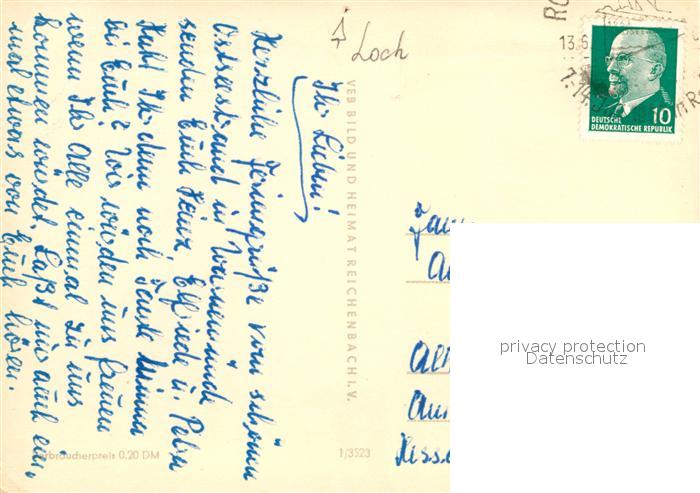 Ihr Lieben!
Herzliche Feriengrüße vom schönen
Ostseestrand in Warnemünde
senden Euch Heinz, Elfriede u. Petra
Habt Ihr denn noch Tante Minna
bei Euch? Wir würden uns freuen
wenn Ihr Alle einmal zu uns
kommen würdet. Laßt uns auch ein-
mal etwas von Euch hören.
Loch
VEB BILD UND HEIMAT REICHENBACH I. V.
Verbraucherpreis 0,20 DM
1/3523
13.6
10
DEUTSCHE
DEMOKRATISCHE REPUBLIK
Fam
Hess
privacy protection
Datenschutz